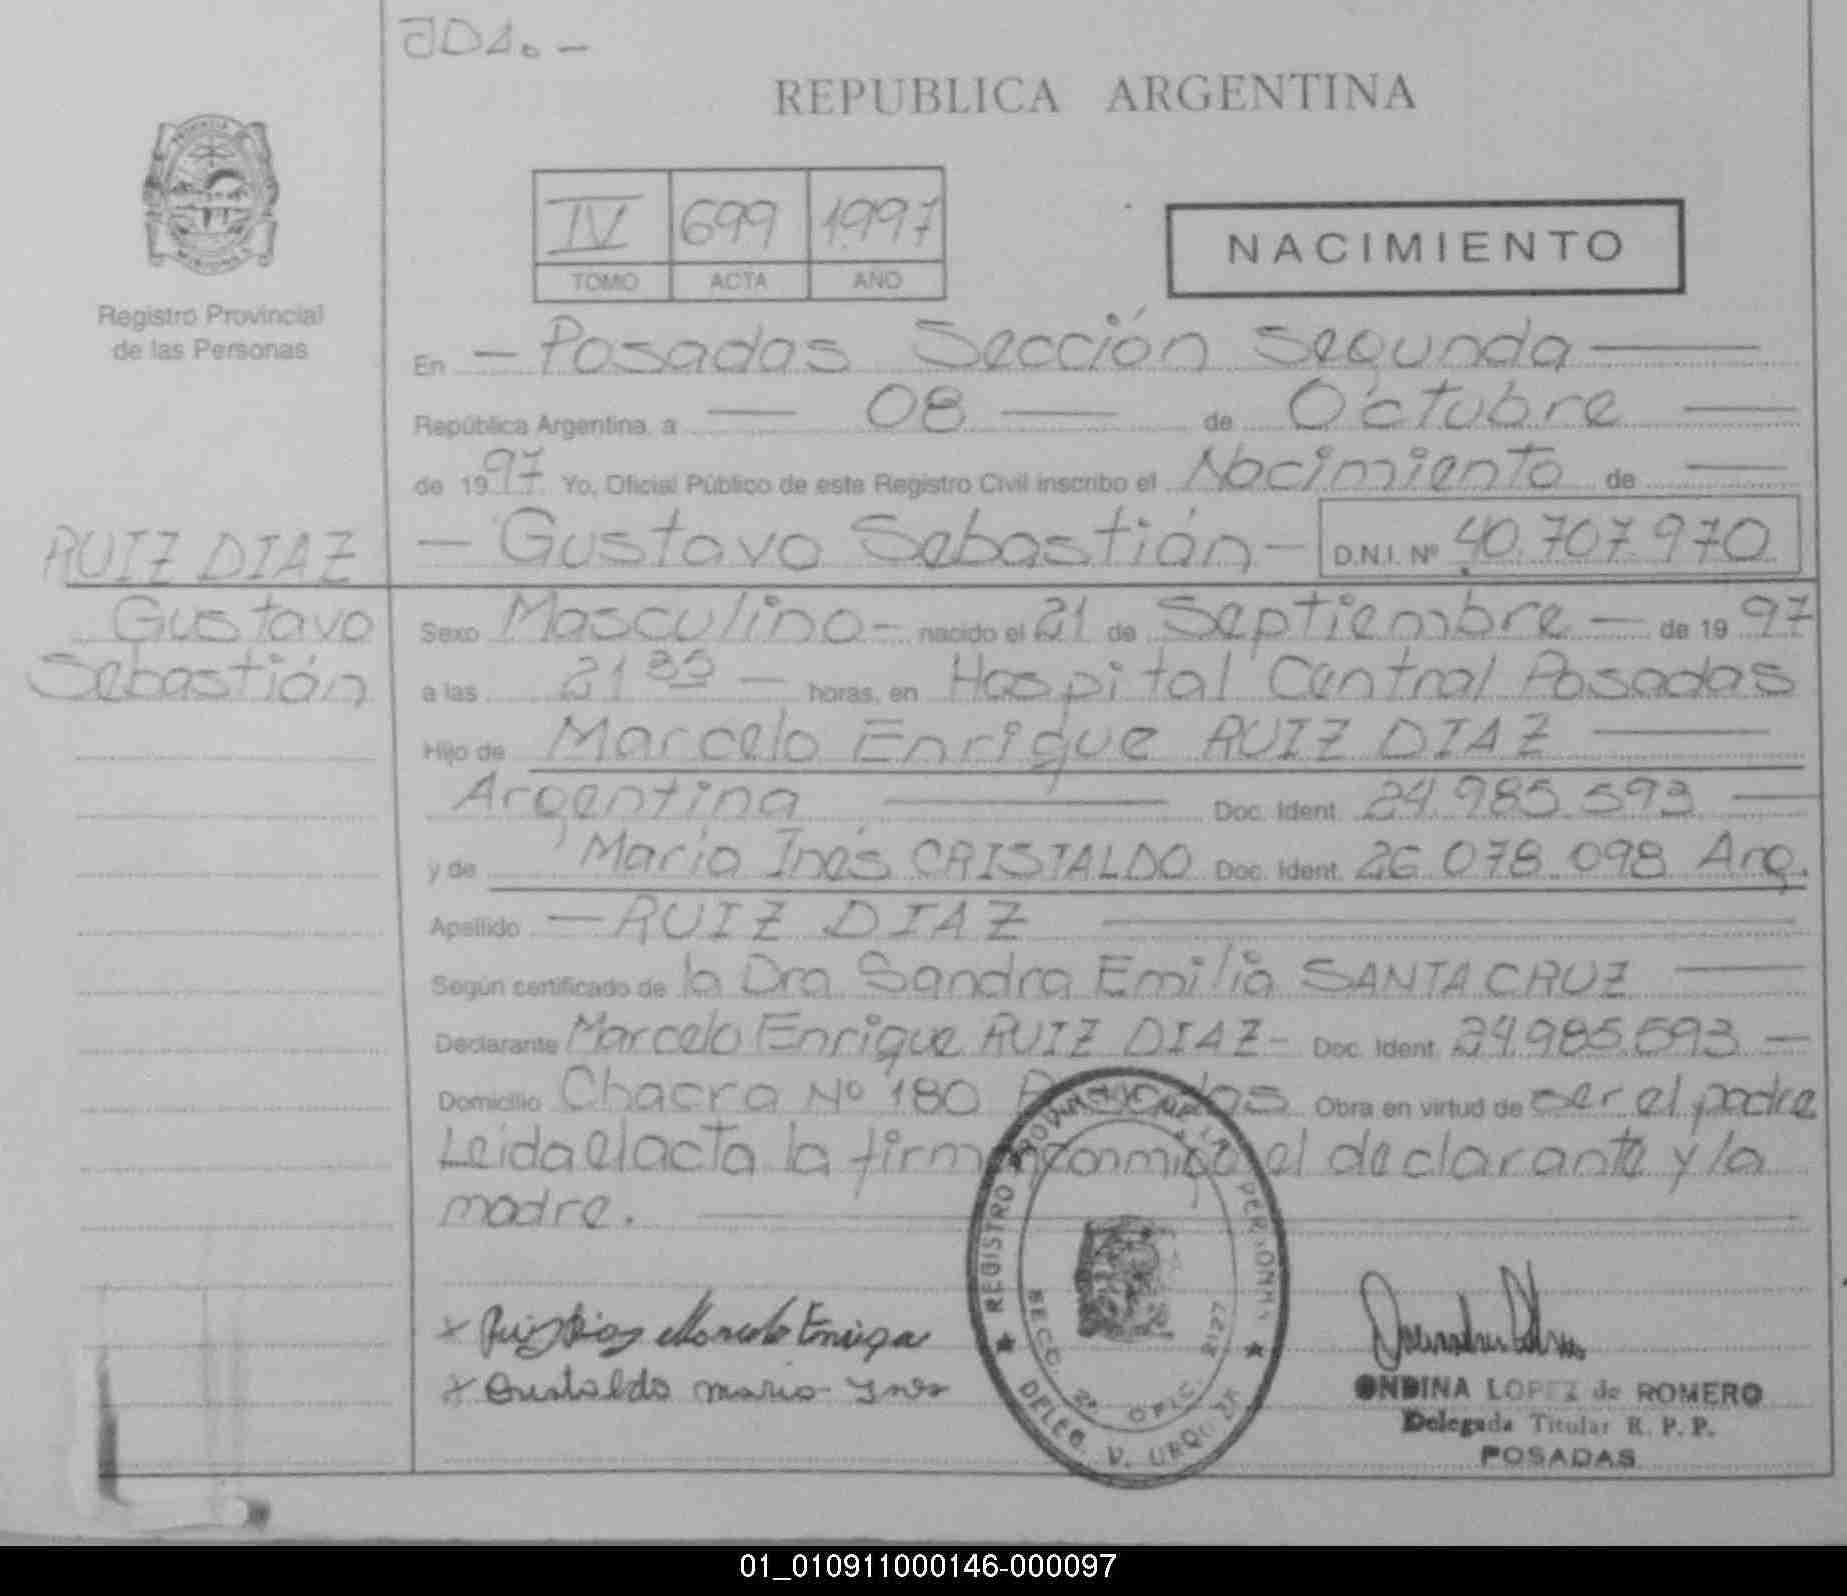 JD1.-
REPUBLICA ARGENTINA
IV 699 1997
TOMO ACTA AÑO
NACIMIENTO
Registro Provincial
de las Personas
En — Posadas Sección Segunda —
República Argentina, a — 08 — de Octubre —
de 1997 Yo, Oficial Público de este Registro Civil inscribo el Nacimiento de —
— Gustavo Sebastián — D.N.I. Nº 40.707.970
RUIZ DIAZ
Gustavo
Sebastián
Sexo Masculino - nacido el 21 de Septiembre — de 1997
a las 21 35 — horas, en Hospital Central Posadas
Hijo de Marcelo Enrique RUIZ DIAZ —
Argentina — Doc. Ident. 24.985.593 —
y de María Inés CRISTALDO Doc. Ident. 26.078.098 Arg.
Apellido — RUIZ DIAZ —
Según certificado de la Dra Sandra Emilia SANTA CRUZ —
Declarante Marcelo Enrique RUIZ DIAZ - Doc. Ident. 24.985.593 —
Domicilio Chacra Nº 180 Posadas Obra en virtud de ser el padre
Leida el acta la firman conmigo el declarante y la
madre. —
REGISTRO PROVINCIAL DE LAS PERSONAS
SECC. 2ª OFIC. 2127
DELEG. V. URQUIZA
x Ruiz Diaz Marcelo Enrique
x Cristaldo Maria Ines
ONDINA LOPEZ de ROMERO
Delegada Titular R. P. P.
POSADAS
01_010911000146-000097